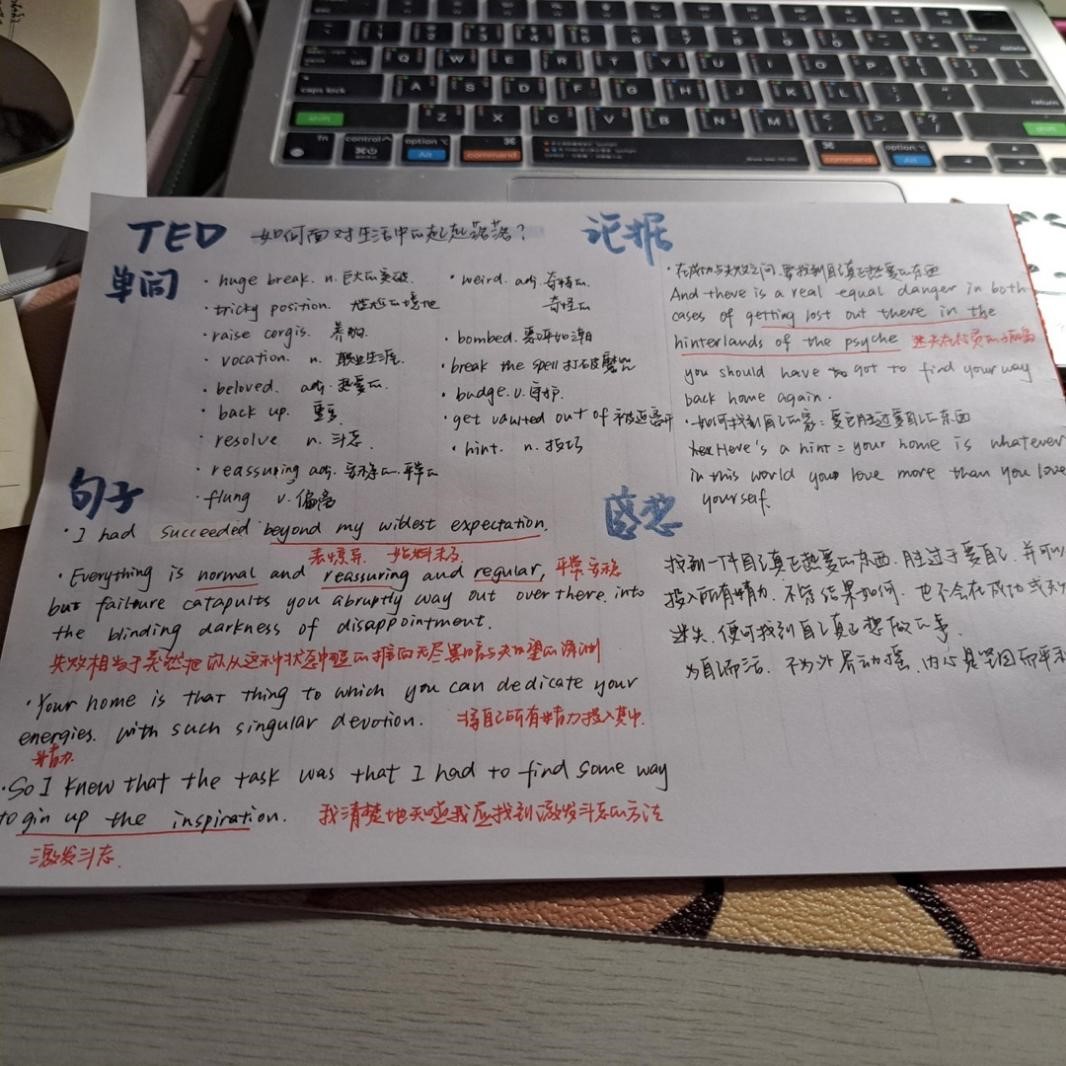 TED 如何面对生活中的起起落落?
单词
· huge break. n. 巨大的突破
· tricky position. 尴尬的境地
· raise corgis. 养狗.
· vocation. n. 职业生涯.
· beloved. adj. 热爱的.
· back up. 重
· resolve n. 斗志.
· reassuring adj. 安稳的. 平常的
· flung v. 偏离
· weird. adj. 奇特的.
奇怪的
· bombed. 恶评如潮
· break the spell 打破魔咒
· budge. v. 守护.
· get vawted out of 被迫离开
· hint. n. 技巧
句子
· I had succeeded beyond my wildest expectation.
表惊异. 始料未及
· Everything is normal and reassuring and regular, 平常安稳
but failoure catapults you abruptly way out over there. into
the blinding darkness of disappointment.
失败相当于突然把你从这种状态中猛的推向无尽黑暗与失望的深渊
· Your home is that thing to which you can dedicate your
energies. with such singular devotion. 将自己所有精力投入其中.
精力.
· So I knew that the task was that I had to find some way
to gin up the inspiration. 我清楚地知道我应找到激发斗志的方法
激发斗志.
论据
· 在成功与失败之间, 要找到自己真正热爱的东西
And there is a real equal danger in both
cases of getting lost out there in the
hinterlands of the psyche 迷失在心灵的
you should have to got to find your way
back home again.
· 如何找到自己的家: 爱它胜过爱自己的东西
Here's a hint = your home is whatever
in this world you love more than you love
yourself.
感想
找到一件自己真正热爱的东西. 胜过于爱自己. 并可以
投入所有精力. 不管结果如何. 也不会在成功或失
迷失. 便可找到自己真正想做的事.
为自己而活. 不为外界动摇. 内心是坚固而平
fn
control
option
Alt
command
command
option
Alt
tab
caps lock
shift
Q W E R T Y U I O P
A S D F G H J K L
Z X C V B N M
delete
return
shift